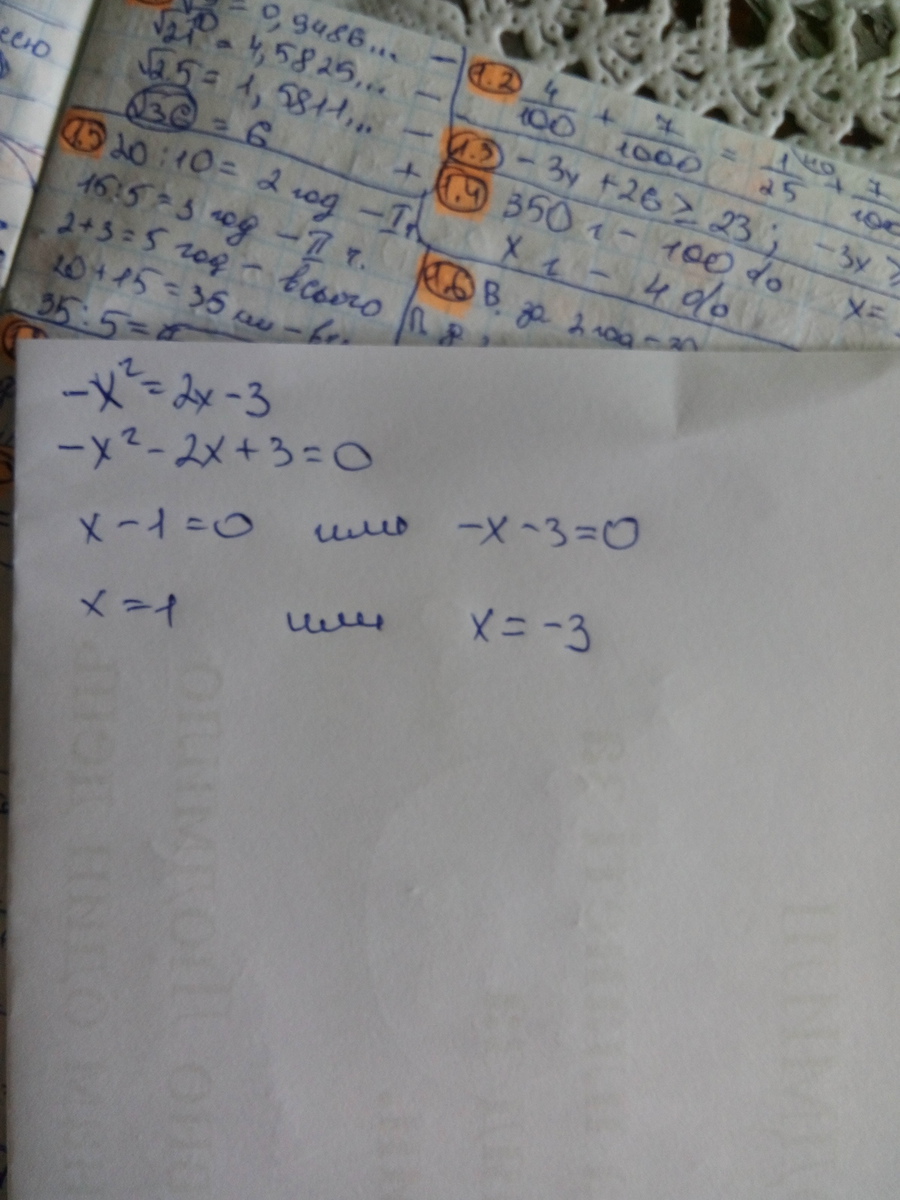 = 0,9486...
√21 = 4,5825... -
√2,5 = 1,5811... -
√36 = 6 +
20 : 10 = 2 год - I ч.
15 : 5 = 3 год - II ч.
2 + 3 = 5 год - всього
20 + 15 = 35 км -
35 : 5 =
1.2
4/100 + 7/1000 = 1/25 + 7/100
1.3 -3x + 26 ≥ 23; -3x ≥
1.4 350 г - 100%
x г - 4% x =
1.6 В. за 2 год - 20
-x² = 2x - 3
-x² - 2x + 3 = 0
x - 1 = 0 или -x - 3 = 0
x = 1 или x = -3